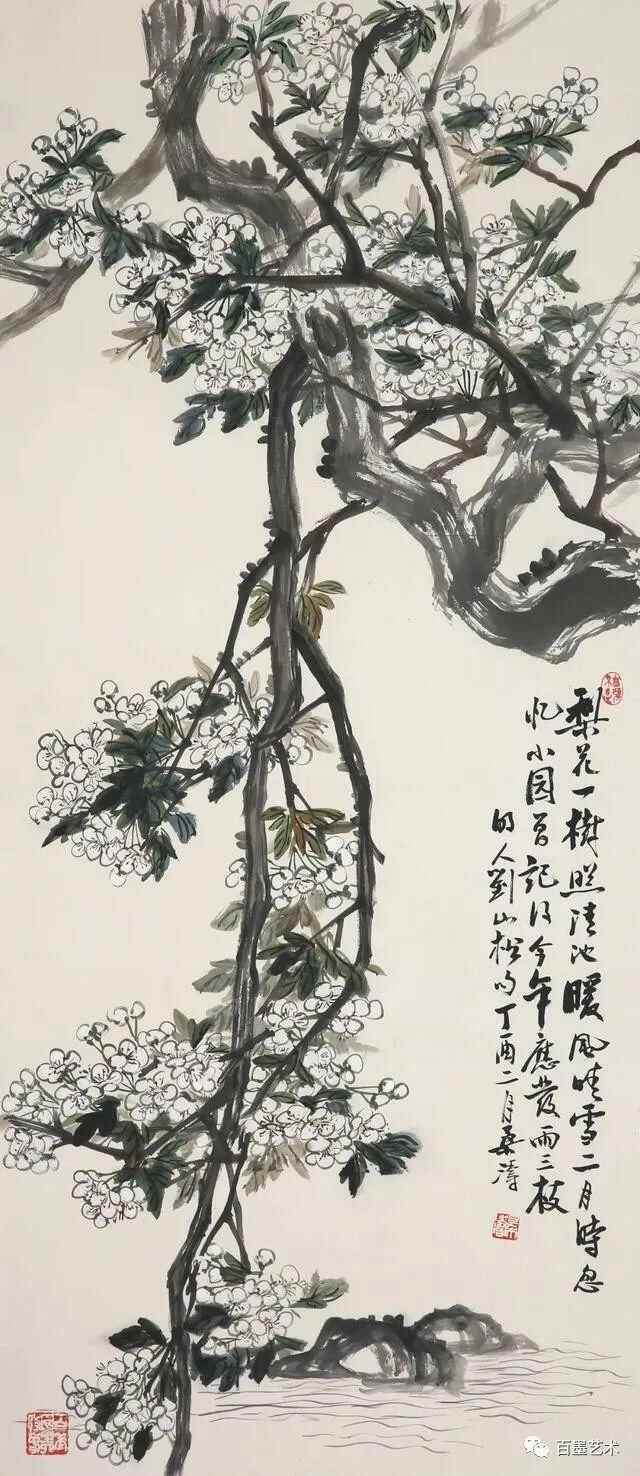 梨花一樹照清池暖風晴雪二月時忽
忆小園曾記得今年應發兩三枝
明人劉崧句丁酉二月桑濤
百墨艺术